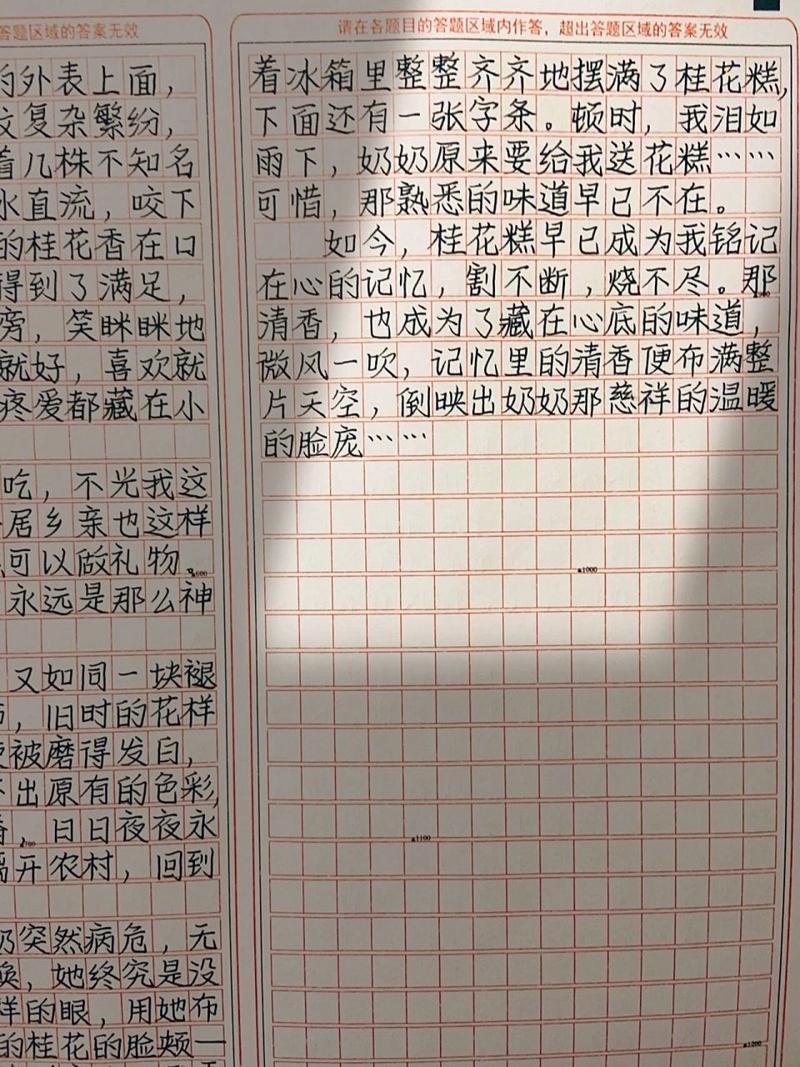 答题区域的答案无效
的外表上面，
复杂繁纷，
着几株不知名
水直流，咬下
的桂花香在口
得到了满足，
旁，笑眯眯地
就好，喜欢就
疼爱都藏在小
吃，不光我这
居乡亲也这样
可以做礼物。
永远是那么神
又如同一块褪
，旧时的花样
被磨得发白，
出原有的色彩，
，日日夜夜永
离开农村，回到
奶突然病危，无
唤，她终究是没
样的眼，用她布
的桂花的脸颊一
请在各题目的答题区域内作答，超出答题区域的答案无效
着冰箱里整整齐齐地摆满了桂花糕，
下面还有一张字条。顿时，我泪如
雨下，奶奶原来要给我送花糕……
可惜，那熟悉的味道早已不在。
如今，桂花糕早已成为我铭记
在心的记忆，割不断，烧不尽。那
清香，也成为了藏在心底的味道，
微风一吹，记忆里的清香便布满整
片天空，倒映出奶奶那慈祥的温暖
的脸庞……
▲1000
▲1100
▲1200